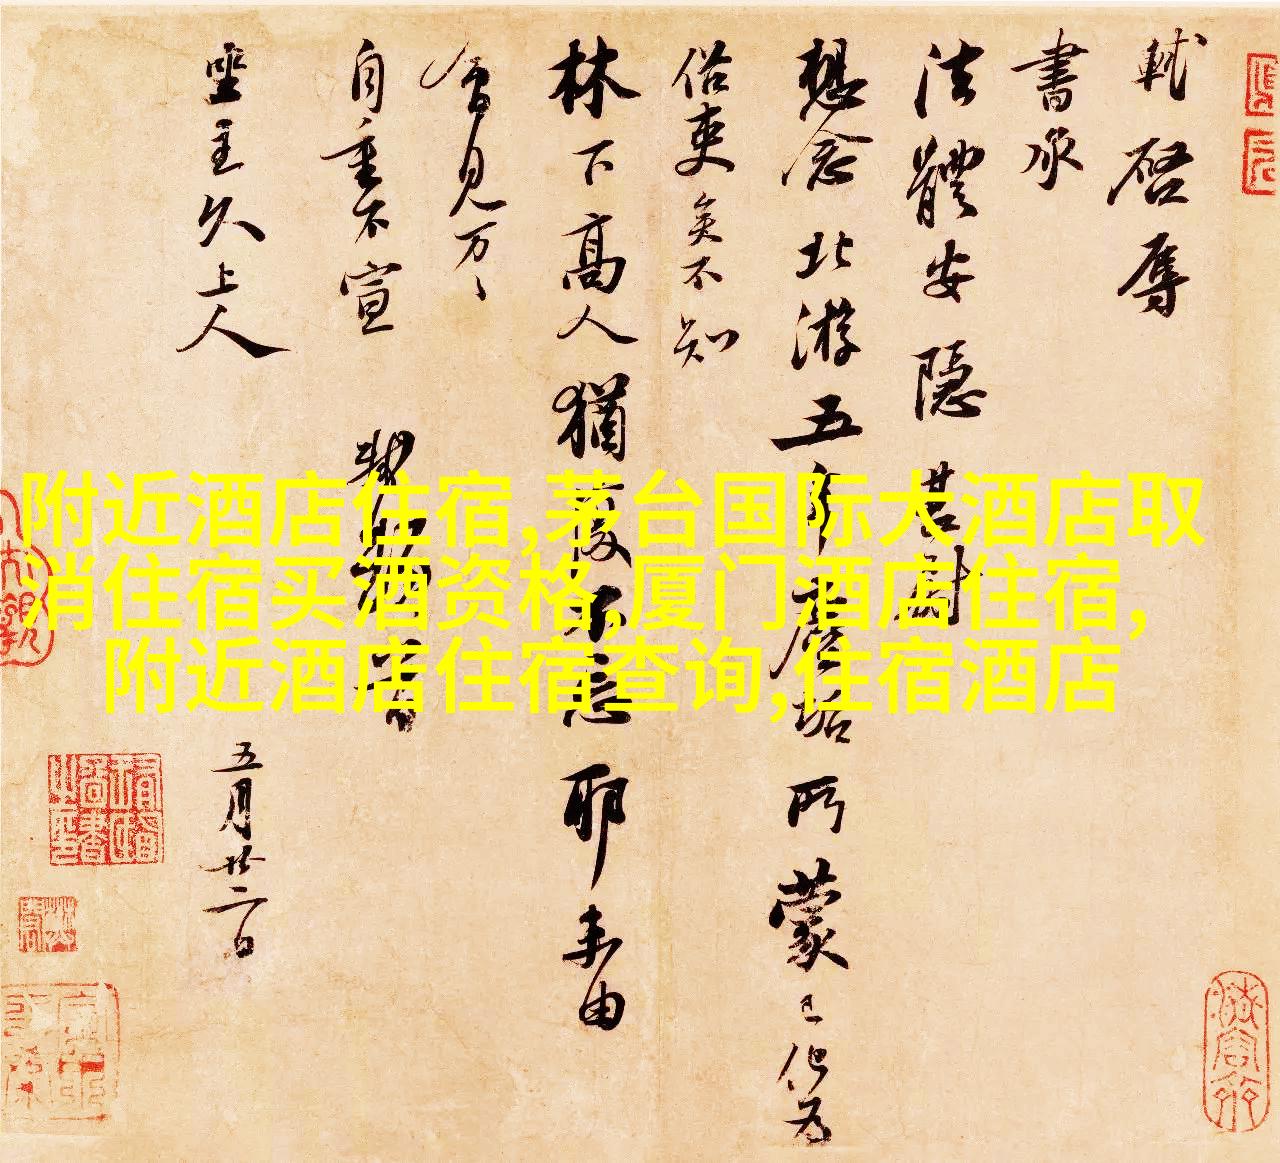 軾啓辱
書承
法體安隱甚尉
想念北游五年塵垢所蒙已化為
俗吏矣不知
林下高人猶復不忘耶未由
會見万〻
自重不宣 軾頓首
坐主久上人
五月廿二日
附近酒店住宿,茅台国际大酒店取
消住宿买酒资格,厦门酒店住宿,
附近酒店住宿查询,住宿酒店